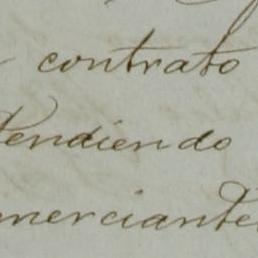 contrato
tendiendo
merciante